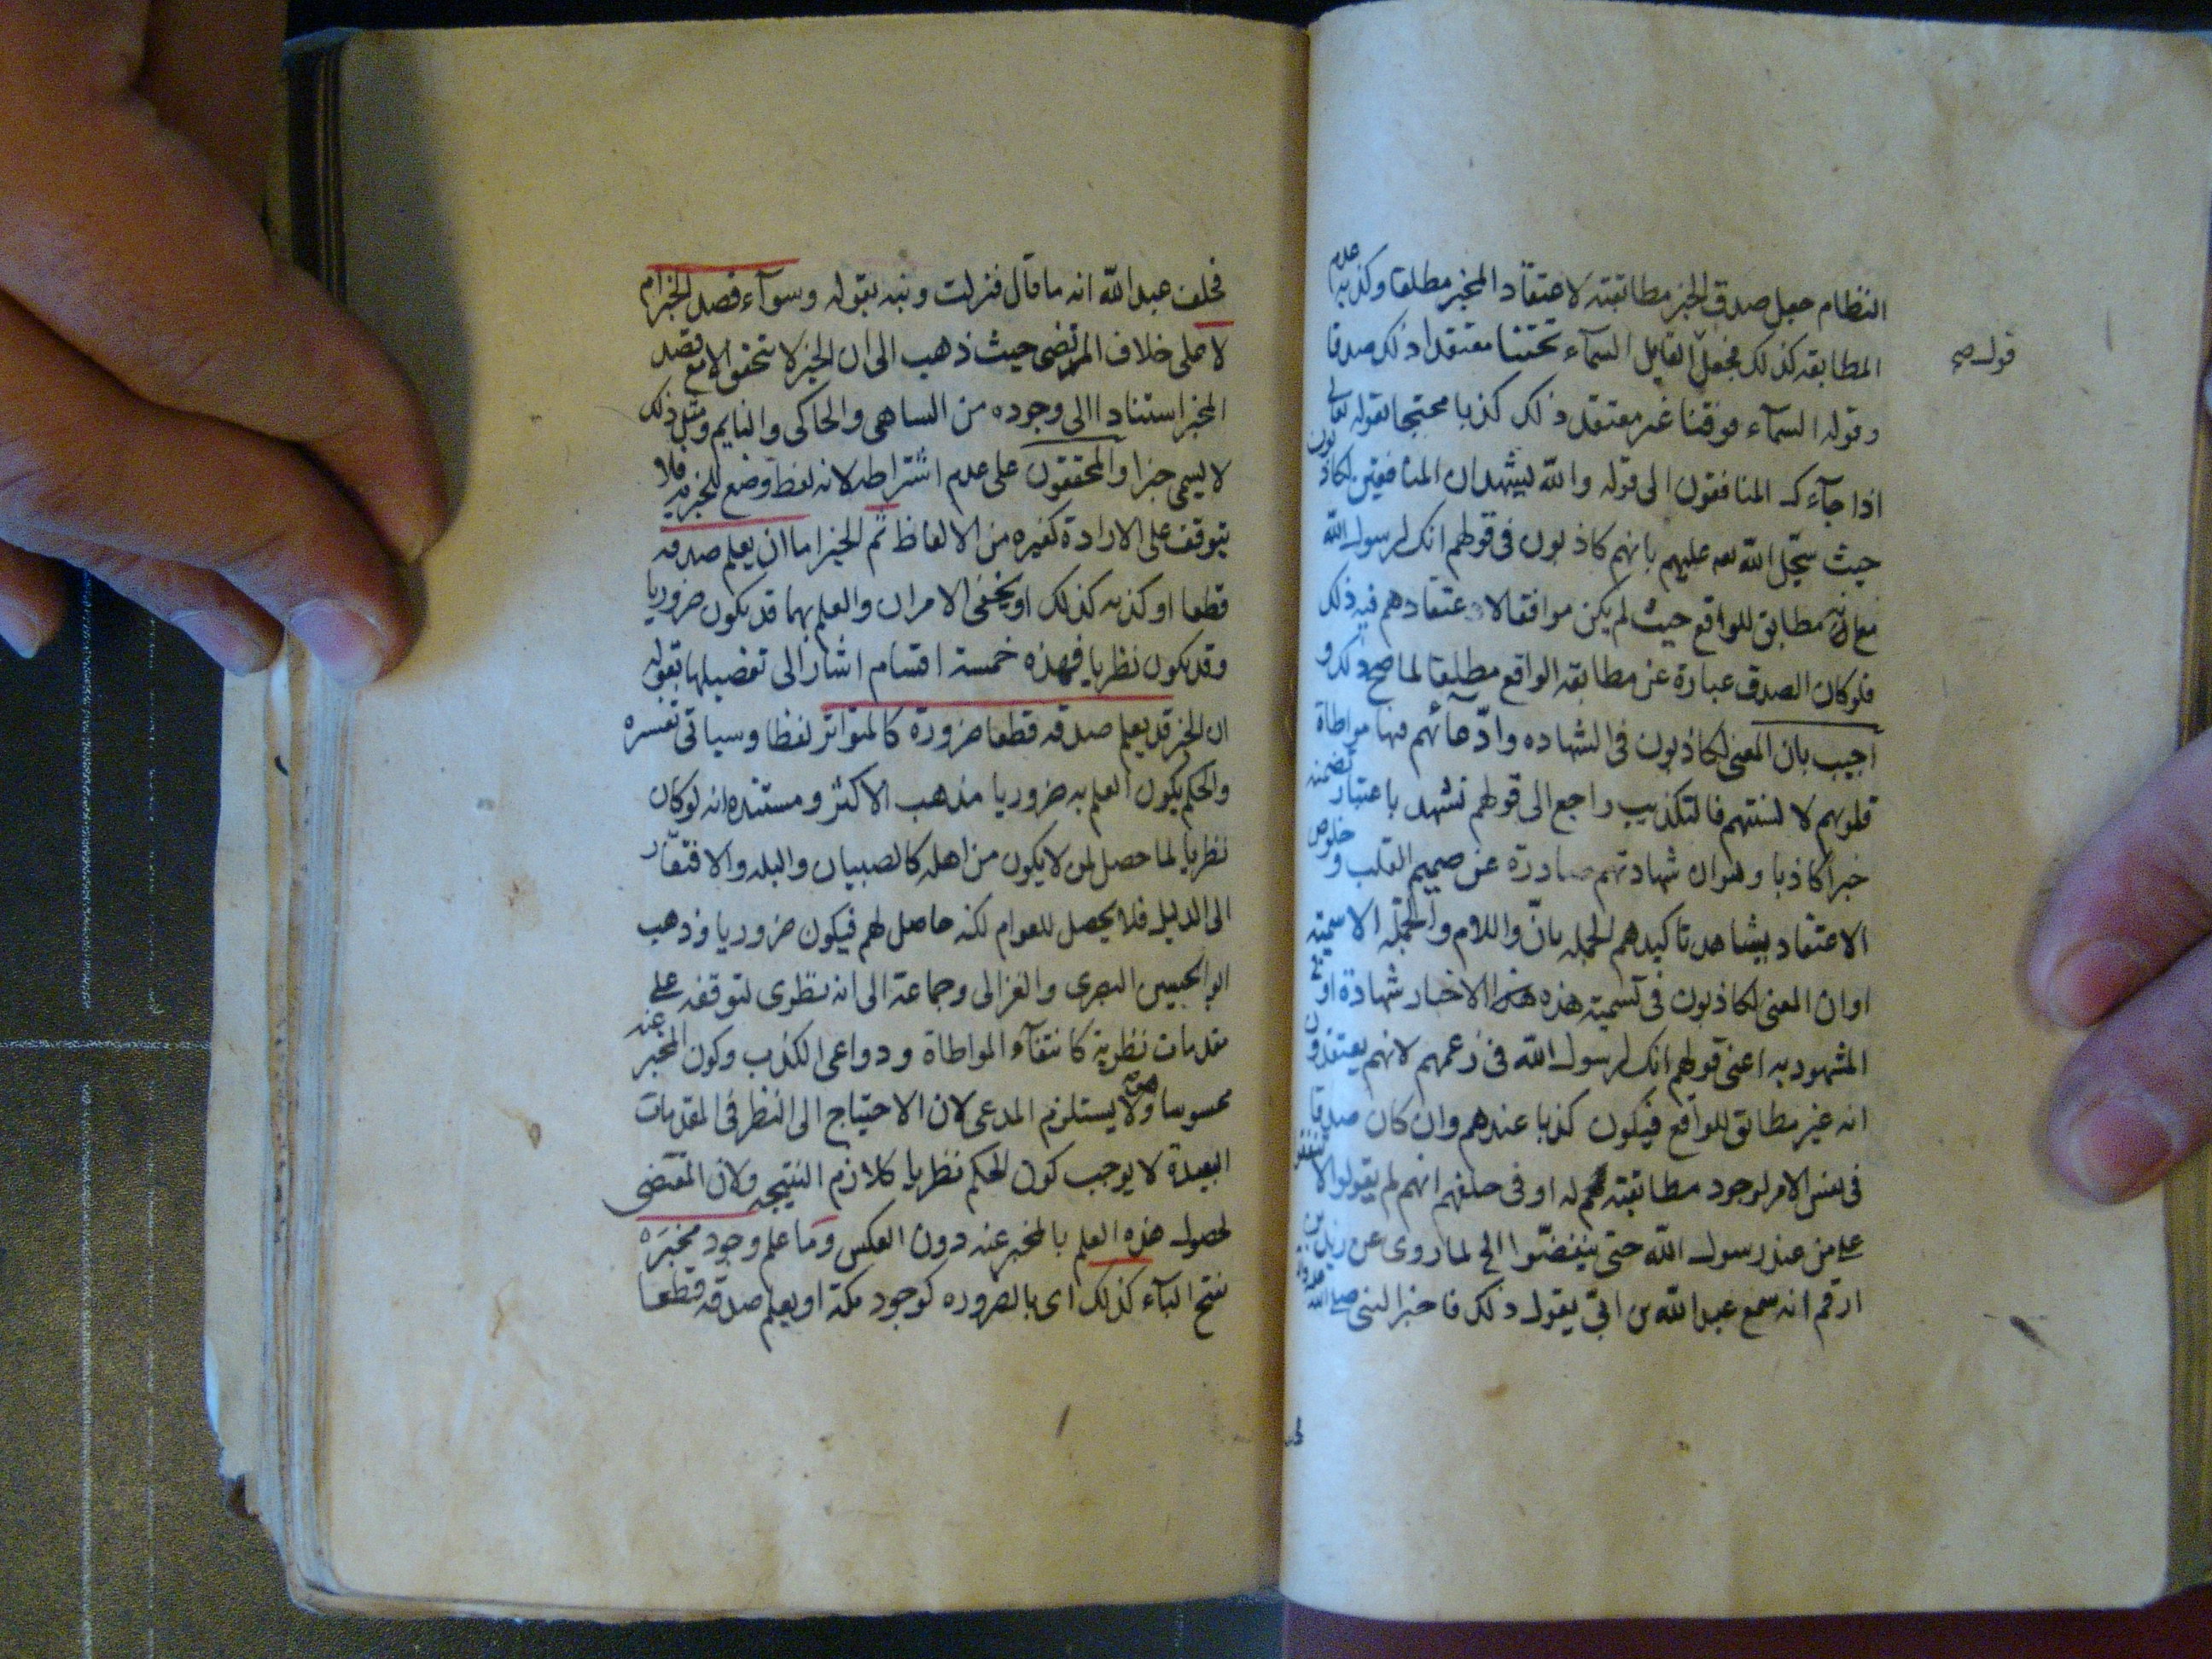 النظام جعل صدق الخبر مطابقته لاعتقاد المخبر مطلقا وكذبه عدم
المطابقه كذلك فجعل القايل السمآء تحتنا معتقدا ذلك صدقا
قوله صح
وقوله السمآء فوقنا غير معتقد ذلك كذبا محتجا بقوله تعالى
اذا جآءك المنافقون الى قوله والله يشهد ان المنافقين لكاذبون
حيث سجّل الله تعه عليهم بانهم كاذبون فى قولهم انك لرسول الله
مع انه مطابق للواقع حيث لم يكن موافقا لاعتقادهم فيه ذلك
فلو كان الصدق عبارة عن مطابقه الواقع مطلقا لما صح ذلك و
اجيب بان المعنى لكاذبون فى الشهاده وادّعآئهم فيها مواطاة
قلوبهم لالسنتهم فالتكذيب راجع الى قولهم نشهد باعتبار تضمنه
خبرا كاذبا وهو ان شهادتهم صادرة عن صميم القلب و خلوص
الاعتقاد بشاهد تاكيدهم الجمله بانّ واللام والجملة الاسمية
او ان المعنى لكاذبون فى تسمية هذه الاخبار شهادة او فى
المشهود به اعنى قولهم انك لرسول الله فى زعمهم لانهم يعتقدون
انه غير مطابق للواقع فيكون كذبا عندهم وان كان صدقا
فى نفس الامر لوجود مطابقته له او فى حلفهم انهم لم يقولوا لا تنفقوا
على من عند رسول الله حتى ينفضّوا الخ لما روى عن زيد بن
ارقم انه سمع عبد الله بن ابىّ يقول ذلك فاخبر النبى صلى الله
فحلف عبد الله انه ما قال فنزلت ونبه بقوله وسوآء قصد الخبر ام
لا على خلاف المرتضى حيث ذهب الى ان الخبر لا يتحقق الا مع قصد
المخبر استنادا الى وجوده من الساهى والحاكى والنايم ومثل ذلك
لا يسمى خبرا والمحققون على عدم اشتراطه لانه لفظ وضع للخبريه فلا
يتوقف على الارادة كغيره من الالفاظ ثم الخبر اما ان يعلم صدقه
قطعا او كذبه كذلك او يخفى الامران والعلم بهما قد يكون ضروريا
وقد يكون نظريا فهذه خمسة اقسام اشار الى تفصيلها بقوله
ان الخبر قد يعلم صدقه قطعا ضرورة كالمتواتر لفظا وسياتى تفسره
والحكم بكون العلم به ضروريا مذهب الاكثر ومستنده انه لو كان
نظريا لما حصل لمن لا يكون من اهله كالصبيان والبله والافتقار
الى الدليل فلا يحصل للعوام لكنه حاصل لهم فيكون ضروريا وذهب
ابو الحسين البصرى والغزالى وجماعة الى انه نظرى لتوقفه على
مقدمات نظرية كانتفآء المواطاة ودواعى الكذب وكون المخبر عنه
محسوسا وهو لا يستلزم المدعى لان الاحتياج الى النظر فى المقدمات
البعيدة لا يوجب كون الحكم نظريا كلازم النتيجه ولان المقتضى
لحصول هذه العلم بالمخبر عنه دون العكس وما علم وجود مخبَره
بفتح البآء كذلك اى بالضروره كوجود مكة او يعلم صدقه قطعا